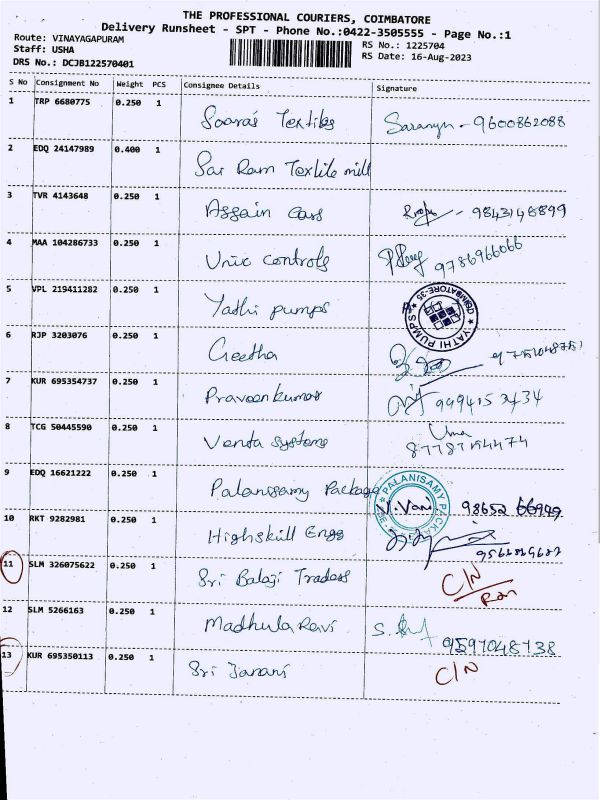 THE PROFESSIONAL COURIERS, COIMBATORE
Delivery Runsheet - SPT - Phone No.:0422-3505555 - Page No.:1
Route: VINAYAGAPURAM
RS No.: 1225704
Staff: USHA
RS Date: 16-Aug-2023
DRS No.: DCJB122570401
S No Consignment No Weight PCS Consignee Details Signature
1 TRP 6680775 0.250 1 Sooras Textiles Saranya - 9600862088
2 EDQ 24147989 0.400 1 Sai Ram Textile mill
3 TVR 4143648 0.250 1 Assain Cars - 9843148899
4 MAA 104286733 0.250 1 Unic controls 9786966066
5 VPL 219411282 0.250 1 Yathi pumps YATHI PUMPS COIMBATORE-35
6 RJP 3203076 0.250 1 Geetha
7 KUR 695354737 0.250 1 Praveenkumar 9994153434
8 TCG 50445590 0.250 1 Venta systems Uma
9 EDQ 16621222 0.250 1 Palanisamy Package PALANISAMY PACKA V.Vani
10 RKT 9282981 0.250 1 Highskill Engg
11 SLM 326075622 0.250 1 Sri Balaji Traders C/N
12 SLM 5266163 0.250 1 Madhula Ravi 9597048738
13 KUR 695350113 0.250 1 Sri Janani C/N